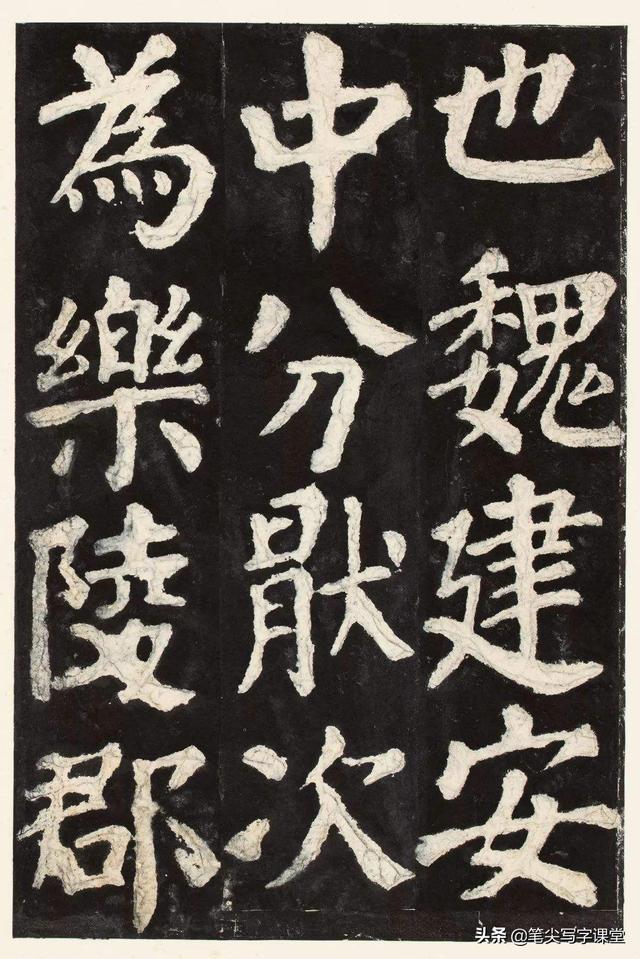 也魏建安
中分猒次
為樂陵郡
头条 @笔尖写字课堂